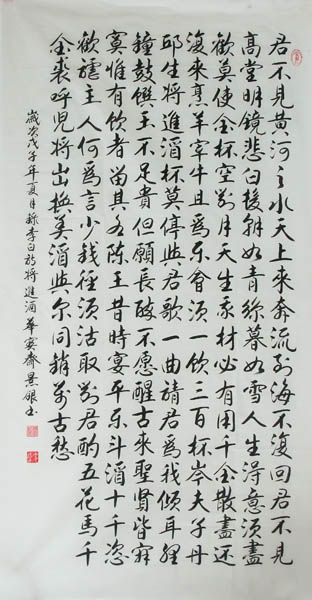 君不見黄河之水天上来奔流到海不復回君不見
高堂明鏡悲白髮朝如青絲暮如雪人生得意須盡
歡莫使金杯空對月天生我材必有用千金散盡還
復来烹羊宰牛且為樂會須一飲三百杯岑夫子丹
邱生將進酒杯莫停與君歌一曲請君為我傾耳聽
鐘鼓饌玉不足貴但願長醉不愿醒古来聖賢皆寂
寞惟有飲者留其名陳王昔時宴平樂斗酒十千恣
歡謔主人何為言少錢徑須沽取對君酌五花馬千
金裘呼兒將出換美酒與尔同銷萬古愁
歲次戊子年夏月錄李白詩將進酒華寶齋景銀書